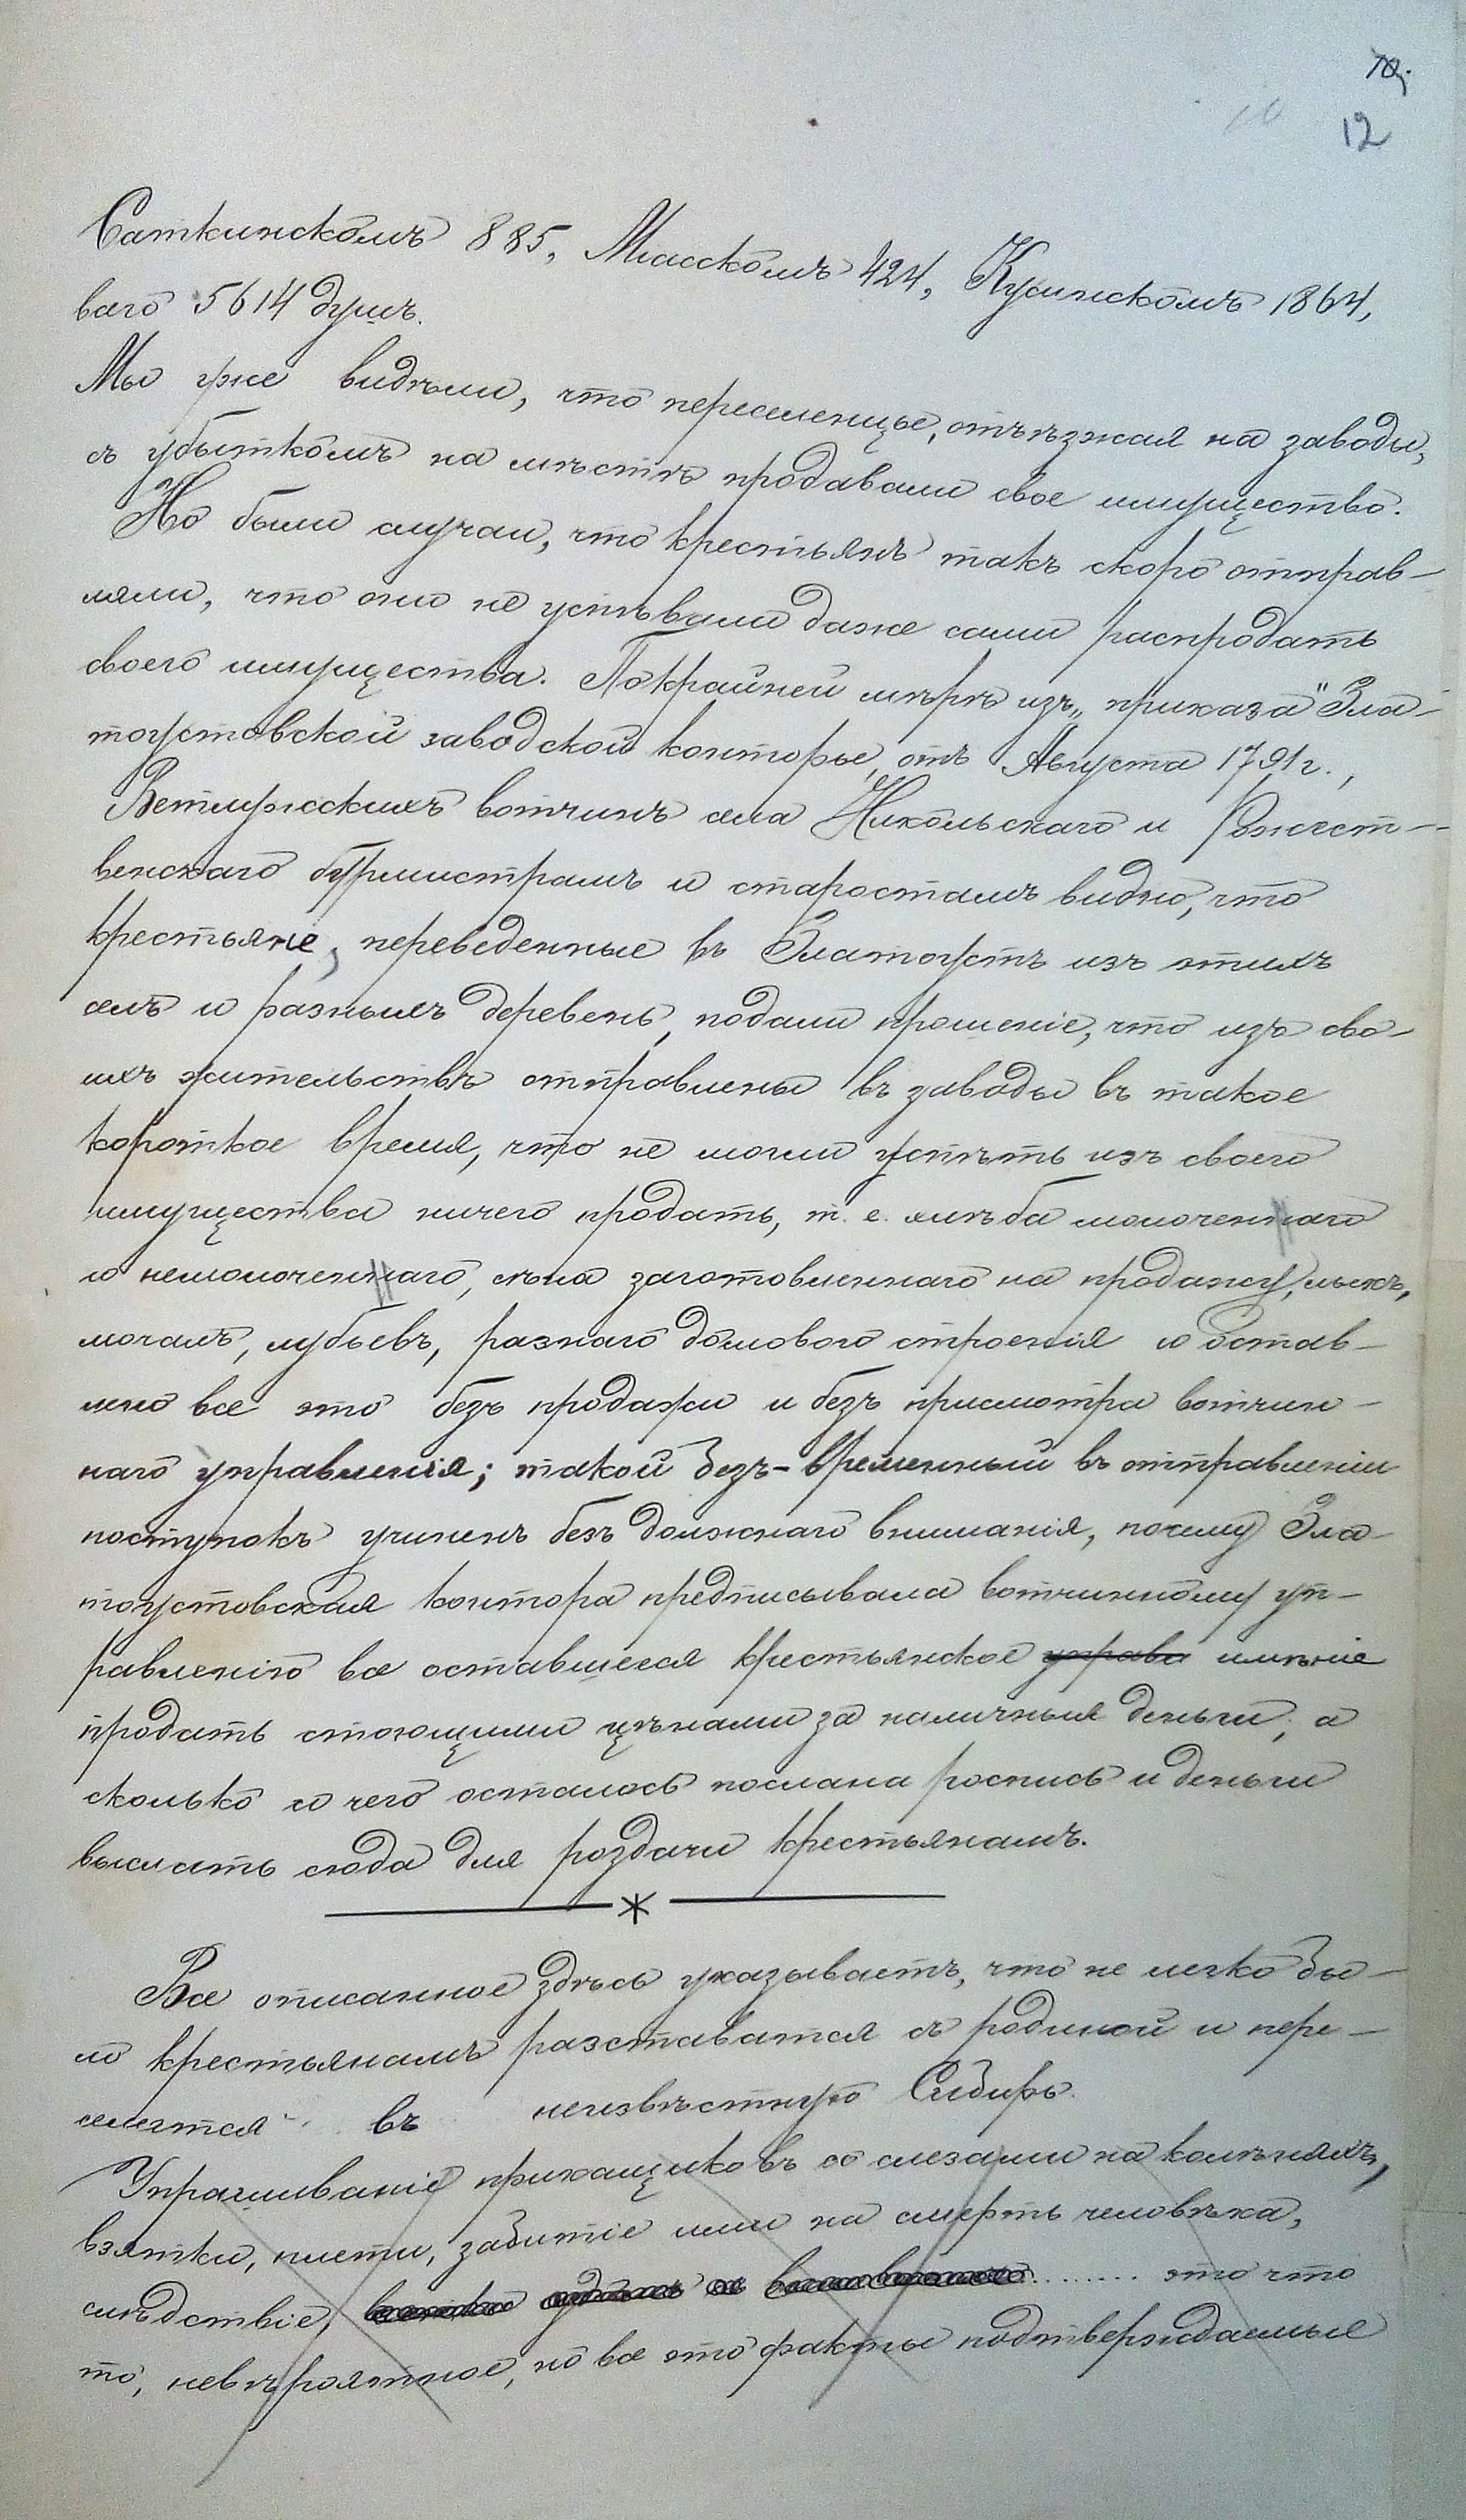 12
Саткинскомъ 885, Міасскомъ 424, Кусинскомъ 1864,
ваго 5614 душъ.
Мы уже видѣли, что переселенцы, отъѣзжая на заводы,
съ убыткомъ на мѣстѣ продавали свое имущество.
Но были случаи, что крестьянъ такъ скоро отправ-
ляли, что они не успѣвали даже сами распродать
своего имущества. Покрайней мѣрѣ изъ „приказа" Зла-
тоустовской заводской конторы, отъ Августа 1791 г.,
Ветлужскихъ вотчинъ села Никольскаго и Рожест-
венскаго бурмистрамъ и старостамъ видно, что
крестьяне, переведенные въ Златоустъ изъ этихъ
селъ и разныхъ деревень, подали прошеніе, что изъ сво-
ихъ жительствъ отправлены въ заводы въ такое
короткое время, что не могли успѣть изъ своего
имущества ничего продать, т. е. хлѣба молоченнаго
и немолоченнаго, сѣна заготовленнаго на продажу, лыкъ,
мочалъ, лубьевъ, разнаго домоваго строенія и остав-
лено все это безъ продажи и безъ присмотра вотчин-
наго управленія; такой безъ-временный въ отправленіи
поступокъ учиненъ безъ должнаго вниманія, почему Зла-
тоустовская контора предписывала вотчинному уп-
равленію все оставшееся крестьянское управа имѣніе
продать стоющими цѣнами за наличныя деньги, а
сколько и чего осталось послана роспись и деньги
выслать сюда для роздачи крестьянамъ.
Все описанное здѣсь указываетъ, что не легко бы-
ло крестьянамъ разставатся съ родиной и пере-
селятся въ неизвѣстную Сибирь.
Упрашиваніе прикащиковъ со слезами на колѣняхъ,
взятки, плети, забитіе ими на смерть человѣка,
слѣдствіе, ........ это что
то, невѣроятное, но все это факты подтверждаемые